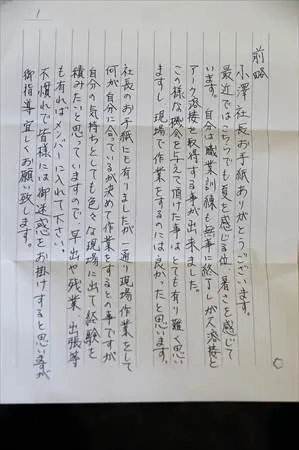 1
前略
小澤社長お手紙ありがとうございます。
最近ではこちらでも夏を感じる位、暑さを感じて
います。自分は職業訓練も無事に終了しガス溶接と
アーク溶接を取得する事が出来ました。
この様な機会を与えて頂けた事はとても有り難く思い
ますし、現場で作業をするのには良かったと思います。
社長のお手紙にも有りましたが、一通り現場作業をして
何が自分に合っているか決めて作業をするとの事ですが
自分の気持ちとしても色々な現場に出て経験を
積みたいと思っていますので、早出や残業、出張等
も有ればメンバーに入れて下さい。
不慣れで皆様には御迷惑をお掛けすると思いますが
御指導宜しくお願い致します。